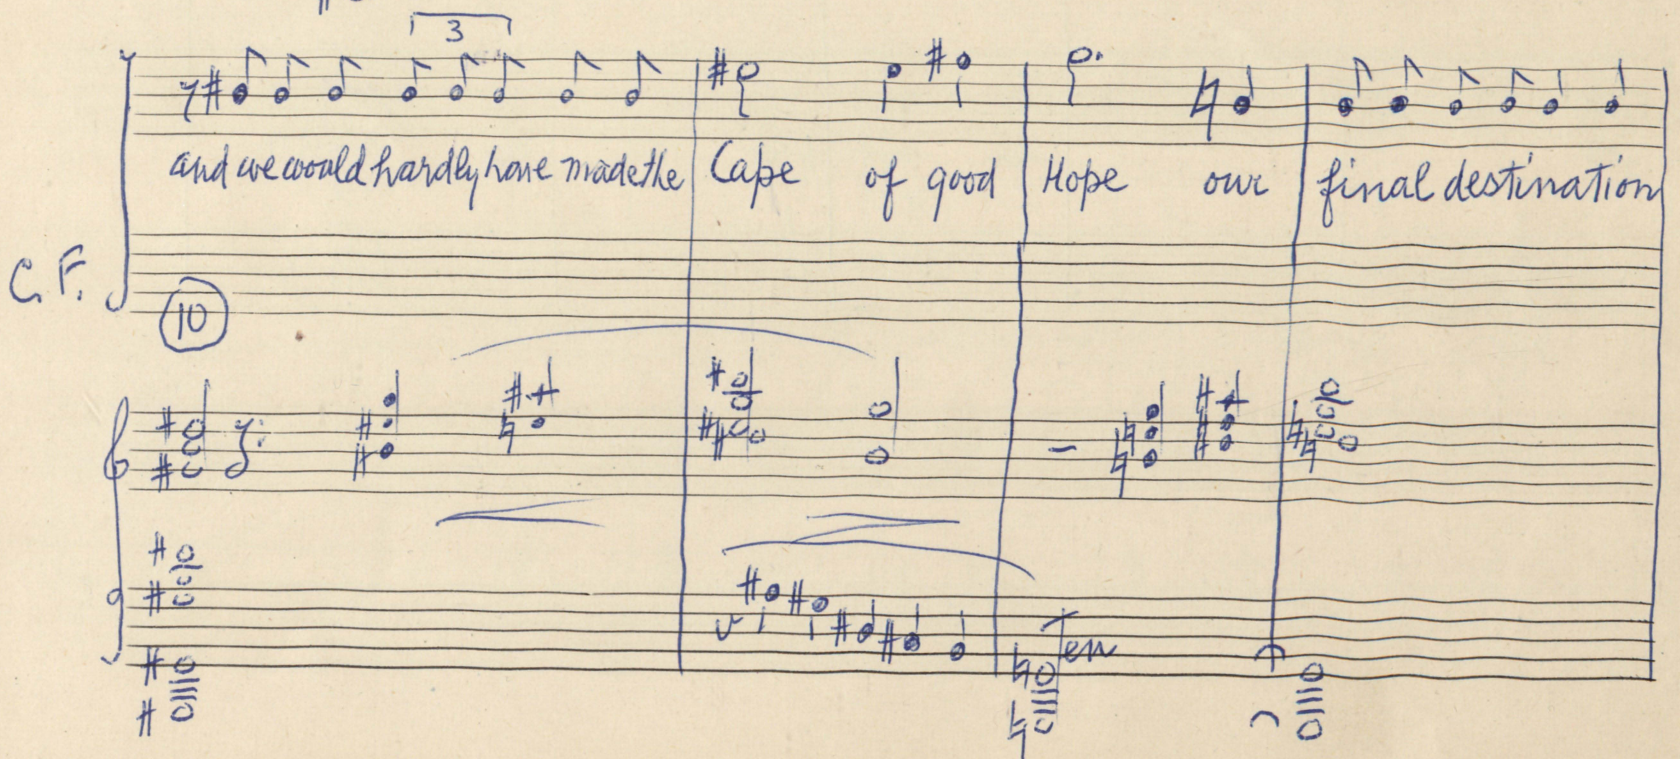 3
and we would hardly have made the Cape of good Hope our final destination
C.F.
10
Ten